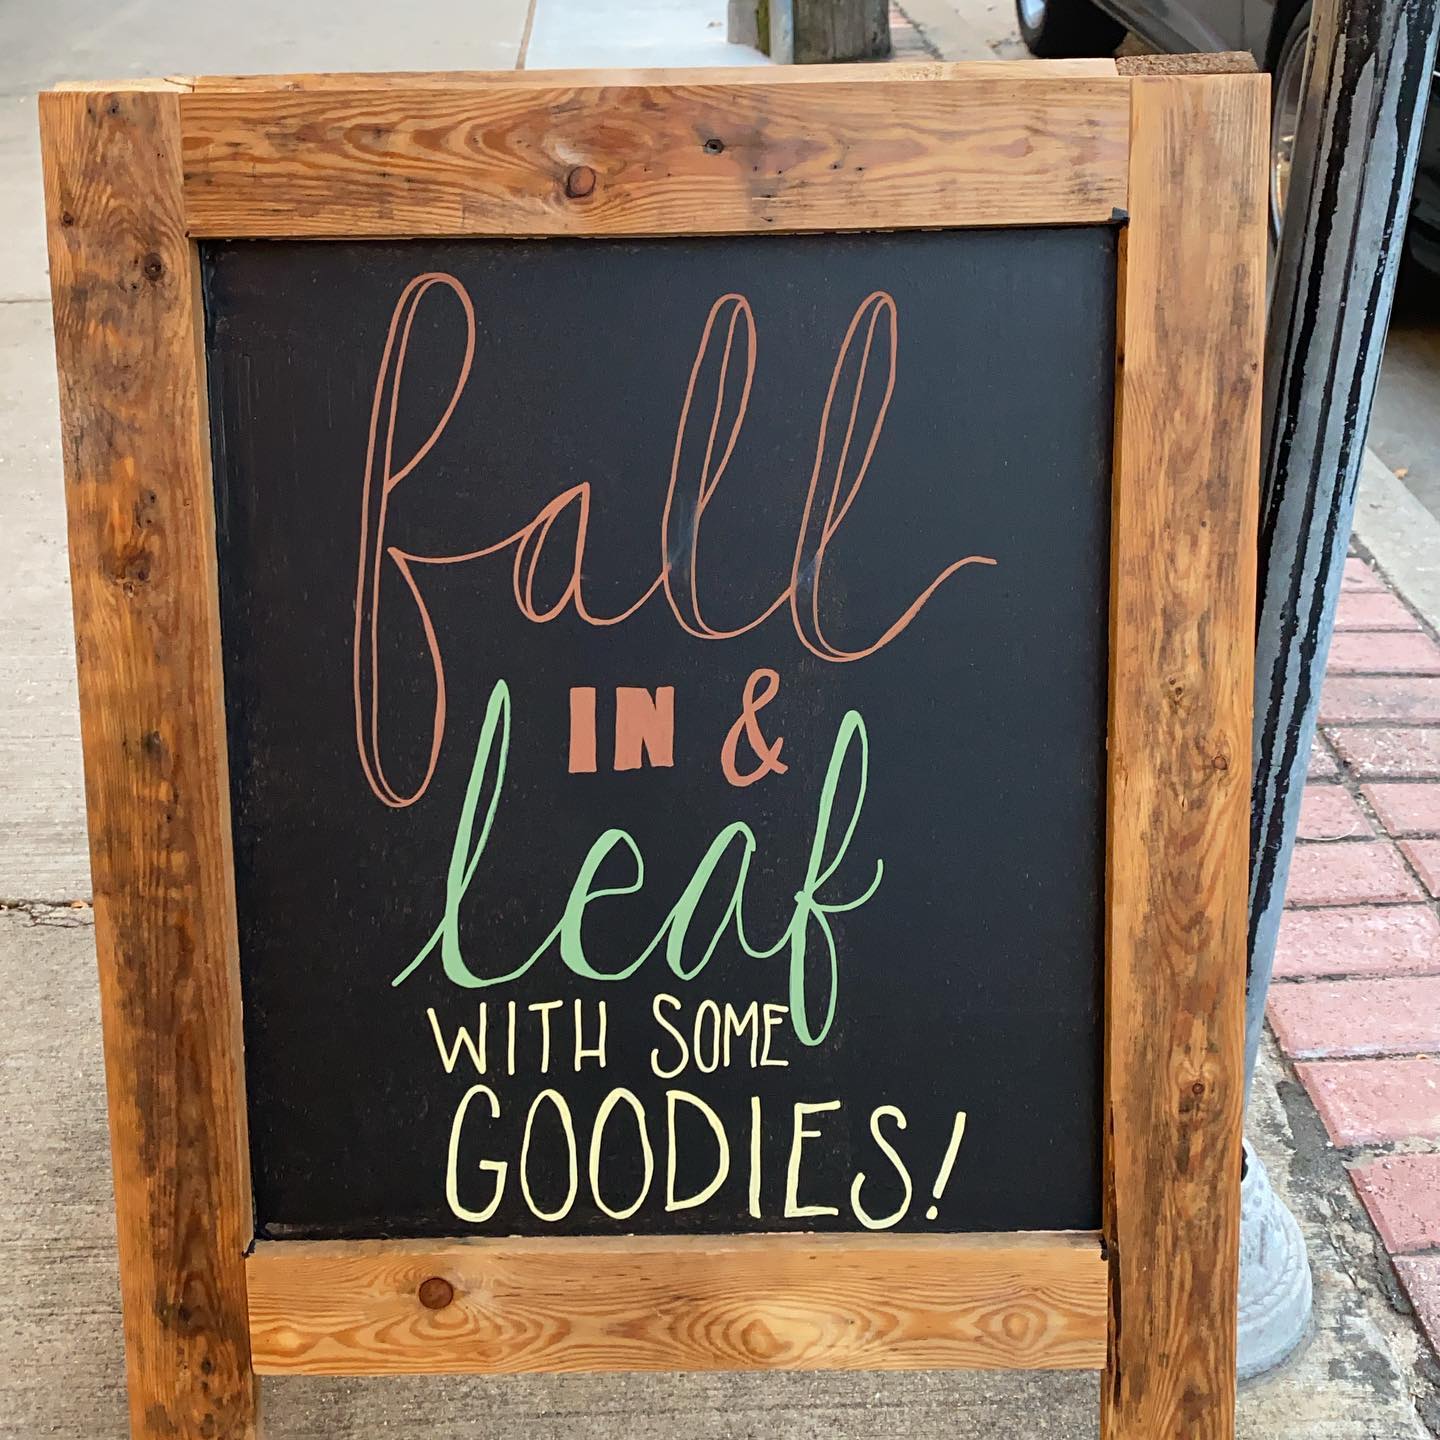 fall
IN &
leaf
WITH SOME
GOODIES!